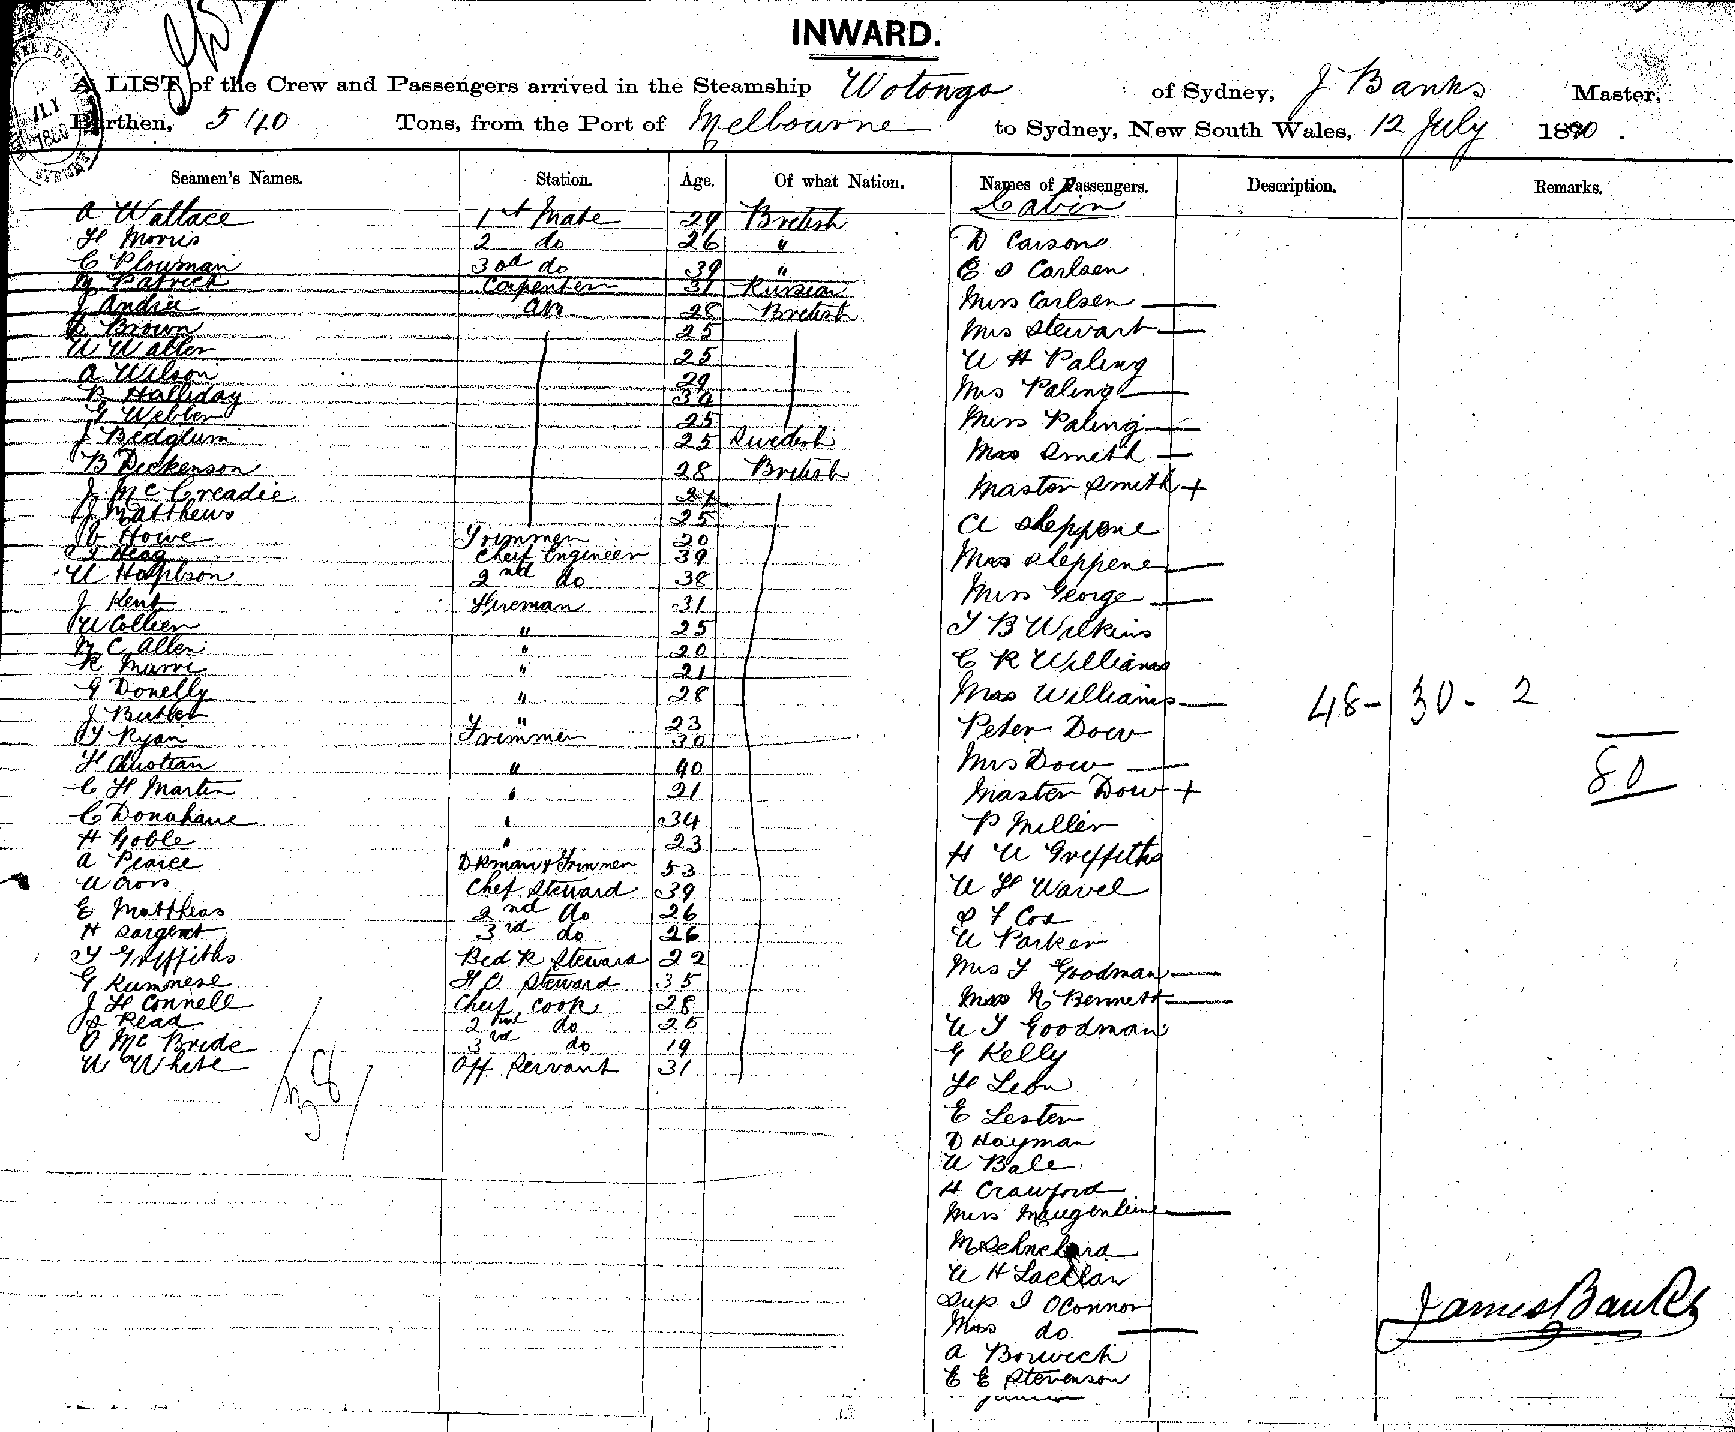 INWARD.
A LIST of the Crew and Passengers arrived in the Steamship Wotonga of Sydney, J Banks Master,
Burthen, 540 Tons, from the Port of Melbourne to Sydney, New South Wales, 12 July 1890.
Seamen's Names. Station. Age. Of what Nation. Names of Passengers. Description. Remarks.
Cabin
A Wallace 1st Mate 29 British
H Morris 2 do 26 " D Carson
C Plowman 3rd do 39 " E S Carlsen
M Patrick Carpenter 31 Russian Miss Carlsen —
J Andrie AB 28 British Mrs Stewart —
Brown 25
W Waller 25 W H Paling
A Wilson 29 Mrs Paling —
R Halliday 30
G Webber 25 Miss Paling —
J Bedglum 25 Swedish Mrs Smith —
B Dickenson 28 British Master Smith +
J McCreadie 27
J Matthews 25 A Sheppone
Howe Trimmer 20
Heag Chief Engineer 39 Mrs Sheppene —
W 2nd do 38 Miss George —
J Kent Fireman 31
W Collier " 25 T B Wilkins
M C Allen " 20 C R Williams
R " 21
G Donelly " 28 Mrs Williams — 48- 30- 2
J Butler " 23 Peter Dow
T Ryan Trimmer 30
H Christian " 40 Mrs Dow — 80
C H Martin " 21 Master Dow +
C Donahaue " 34 P Miller
H Goble " 23 H W Griffiths
A Pearce Dkman & Trimmer 53
W Cross Chef Steward 39 W H Wavel
E Matthias 2nd do 26 T Cox
H Sargent 3rd do 26 W Parker
T Griffiths Bed R Steward 22 Mrs T Goodman —
G Rumnese Steward 35
J H Connell Chief Cook 28 Mrs N Bennett —
Read 2nd do 26 W T Goodman
O McBride 3rd do 19 G Kelly
W White Off Servant 31 H Leon
E Lester
D Hayman
W Bale
H Crawford
Miss —
W H Lacklan
Sup J OConnor
James Banks
Mrs do —
A Borwick
E E Stevenson
junior